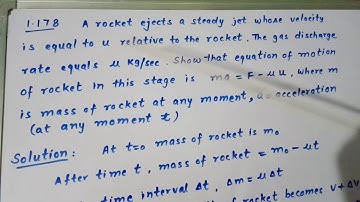 1.178 A rocket ejects a steady jet whose velocity
is equal to u relative to the rocket. The gas discharge
rate equals μ kg/sec. Show that equation of motion
of rocket in this stage is ma = F - μu, where m
is mass of rocket at any moment, a = acceleration
(at any moment t)
Solution: At t=0 mass of rocket is m₀
After time t, mass of rocket = m₀ - μt
time interval Δt, Δm = μΔt
of rocket becomes v+Δv